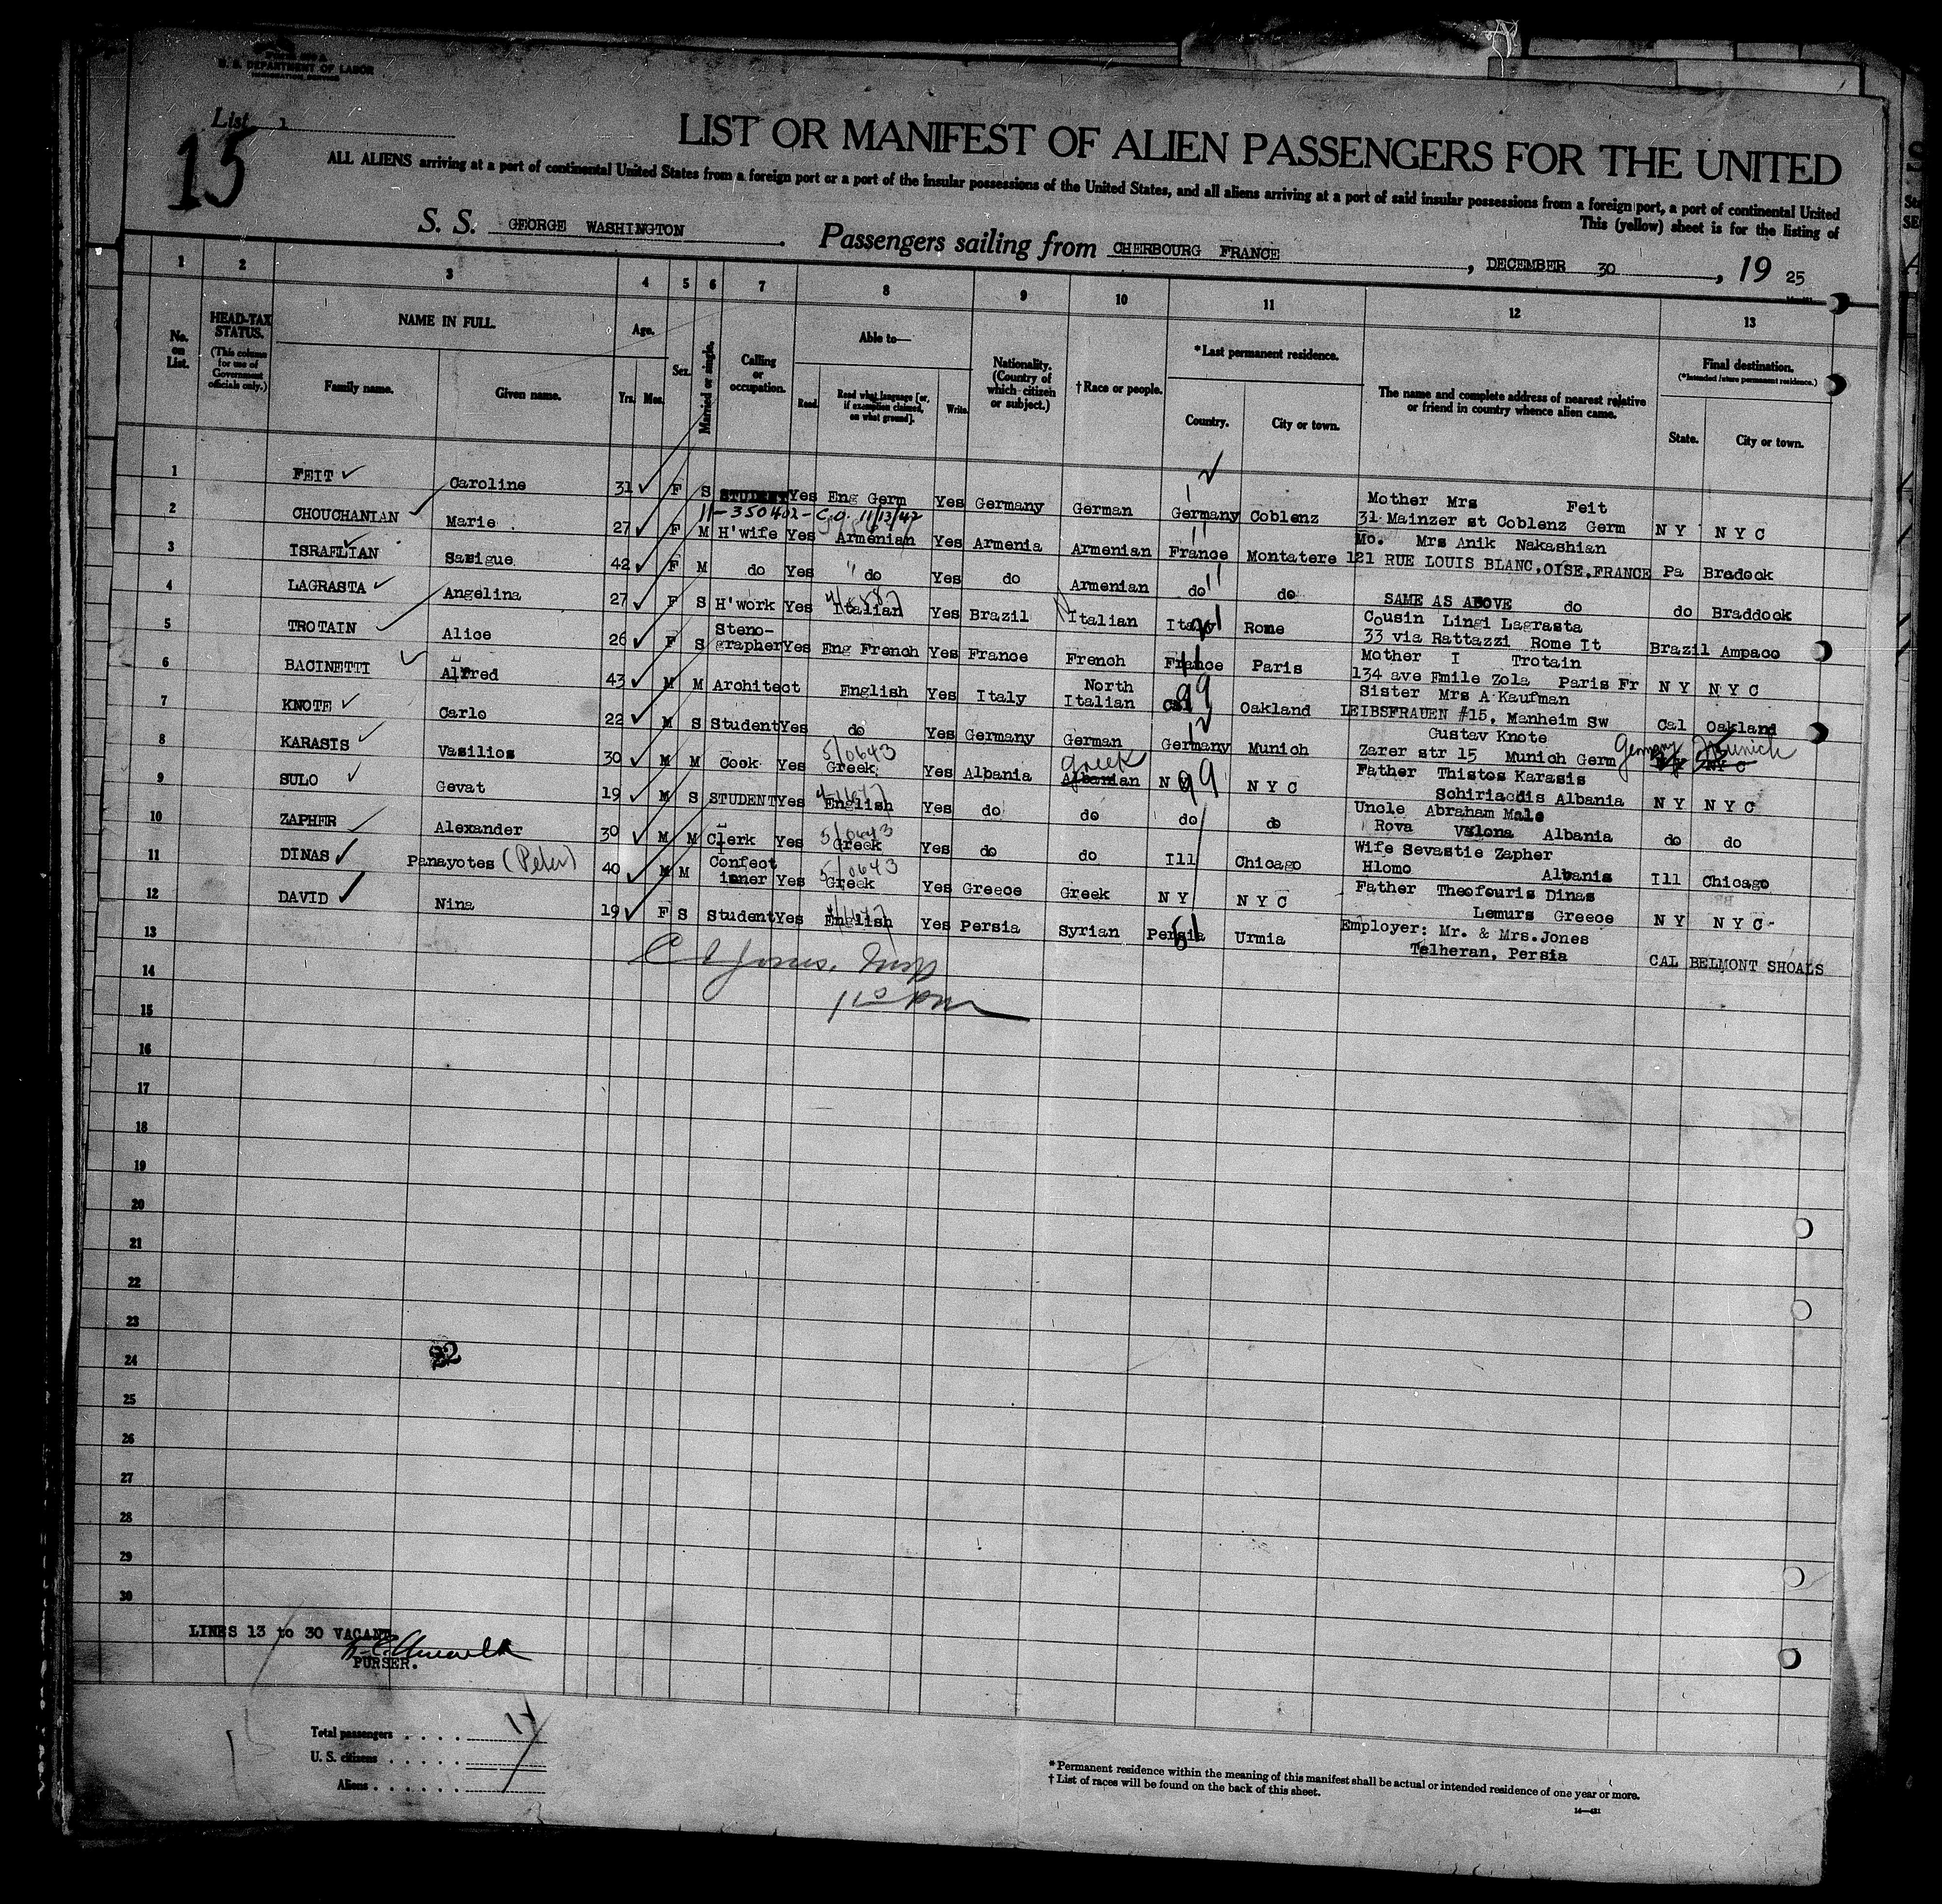 U. S. DEPARTMENT OF LABOR
List 1
15
LIST OR MANIFEST OF ALIEN PASSENGERS FOR THE UNITED
ALL ALIENS arriving at a port of continental United States from a foreign port or a port of the insular possessions of the United States, and all aliens arriving at a port of said insular possessions from a foreign port, a port of continental United
This (yellow) sheet is for the listing of
S. S. GEORGE WASHINGTON. Passengers sailing from CHERBOURG FRANCE, DECEMBER 30, 1925
1 2 3 4 5 6 7 8 9 10 11 12 13
No. on List. HEAD-TAX STATUS. (This column for use of Government officials only.) NAME IN FULL. Family name. Given name. Age. Yrs. Mos. Sex. Married or single. Calling or occupation. Able to— Read. Read what language [or, if exemption claimed, on what ground]. Write. Nationality. (Country of which citizen or subject.) †Race or people. *Last permanent residence. Country. City or town. The name and complete address of nearest relative or friend in country whence alien came. Final destination. (*Intended future permanent residence.) State. City or town.
1 FEIT Caroline 31 F S STUDENT Yes Eng Germ Yes Germany German Germany Coblenz Mother Mrs Feit 31 Mainzer st Coblenz Germ N Y N Y C
11-350402-C.O. 11/13/42
2 CHOUCHANIAN Marie 27 F M H'wife Yes Armenian Yes Armenia Armenian France Montatere Mo. Mrs Anik Nakashian 121 RUE LOUIS BLANC, OISE, FRANCE Pa Bradock
3 ISRAELIAN 42 F M do Yes do Yes do Armenian do do SAME AS ABOVE do do Braddock
4 LAGRASTA Angelina 27 F S H'work Yes Italian Yes Brazil Italian Italy Rome Cousin Lingi Lagrasta 33 via Rattazzi Rome It Brazil Ampaco
5 TROTAIN Alice 26 F S Steno-grapher Yes Eng French Yes France French France Paris Mother I Trotain 134 ave Emile Zola Paris Fr N Y N Y C
6 BACINETTI Alfred 43 M M Architect English Yes Italy North Italian Cal Oakland Sister Mrs A Kaufman LEIBSFRAUEN #15, Manheim Sw Cal Oakland
7 KNOTE Carlo 22 M S Student Yes do Yes Germany German Germany Munich Gustav Knote Zarer str 15 Munich Germ Germany Munich
8 KARASIS Vasilios 30 M M Cook Yes 5/0643 Greek Yes Albania Greek Albanian N Y N Y C Father Thistos Karasis Sohiriachis Albania N Y N Y C
9 SULO Gevat 19 M S STUDENT Yes English Yes do do do do Uncle Abraham Male Rova Vylona Albania do do
10 ZAPHER Alexander 30 M M Clerk Yes 5/0643 Greek Yes do do Ill Chicago Wife Sevastie Zapher Hlomo Albania Ill Chicago
11 DINAS Panayotes (Peter) 40 M M Confect inner Yes 5/0643 Greek Yes Greece Greek N Y N Y C Father Theofouris Dinas Lemurs Greece N Y N Y C
12 DAVID Nina 19 F S Student Yes English Yes Persia Syrian Persia Urmia Employer: Mr. & Mrs. Jones Telheran, Persia CAL BELMONT SHOALS
13
14
15
16
17
18
19
20
21
22
23
24
25
26
27
28
29
30
LINES 13 to 30 VACANT.
PURSER.
Total passengers
U. S. citizens
Aliens
* Permanent residence within the meaning of this manifest shall be actual or intended residence of one year or more.
† List of races will be found on the back of this sheet.